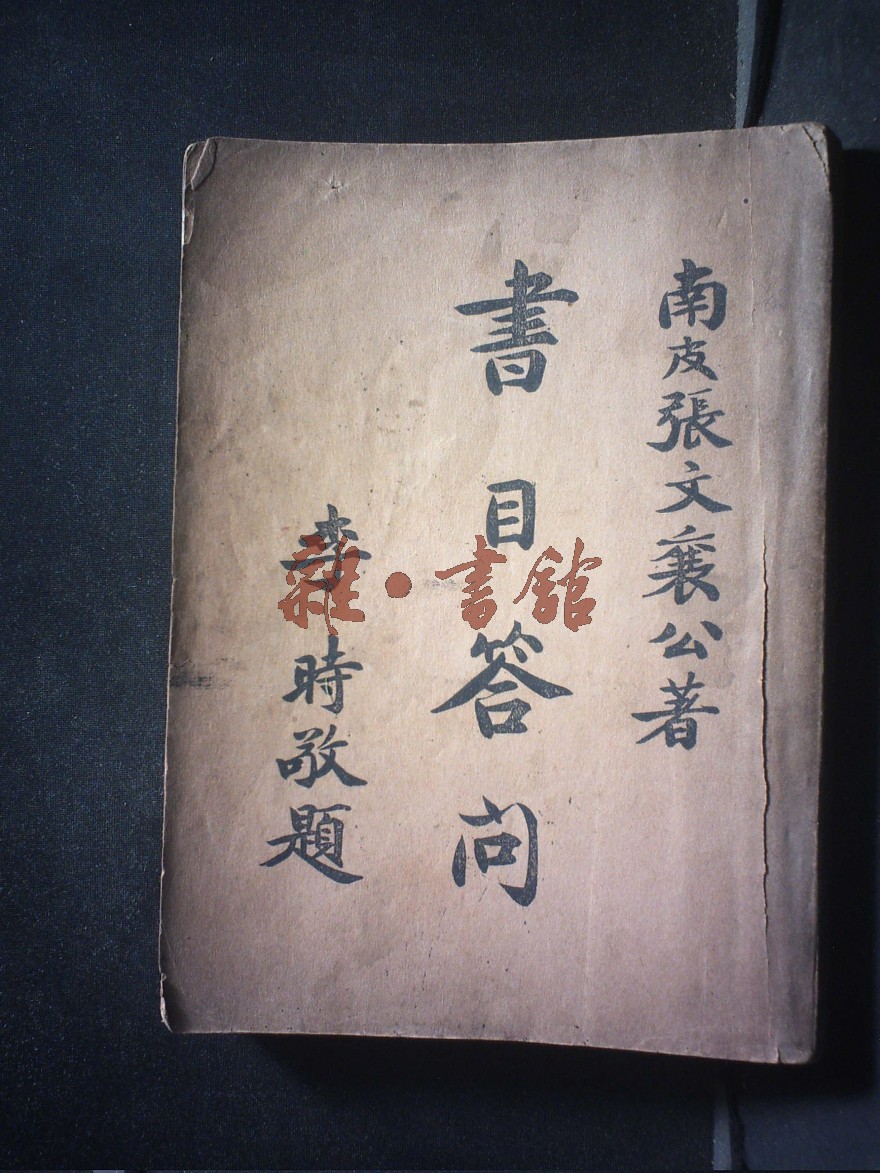 南皮張文襄公著
書目答问
李時敬題
雜·書館